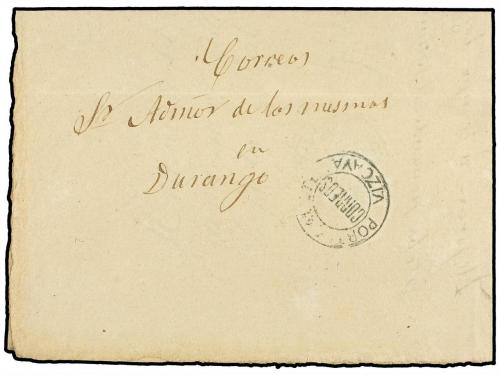 Correos
Sr Admor de los mismos
en
Durango
CORREOS
VIZCAYA